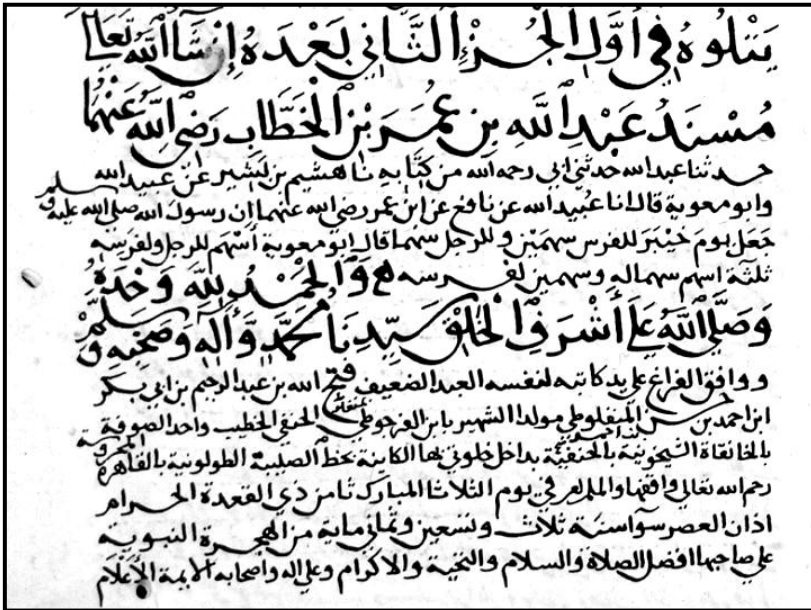 يتلوه في أول الجزء الثاني بعده إن شاء الله تعالى
مُسْنَدُ عَبْدِ اللَّهِ بْنِ عُمَرَ بْنِ الْخَطَّابِ رَضِيَ اللَّهُ عَنْهُمَا
حدثنا عبد الله حدثني ابي رحمه الله من كتابه نا هشيم بن بشير عن عبيد الله
وابو معوية قال انا عبيد الله عن نافع عن ابن عمر رضي الله عنهما ان رسول الله صلى الله عليه وسلم
جعل يوم خيبر للفرس سهمين وللرجل سهما قال ابو معوية اسهم للرجل ولفرسه
ثلثة اسهم سهما له وسهمين لفرسه والحمد لله وحده
وصلى الله على أشرف الخلق سيدنا محمد وآله وصحبه وسلم
ووافق الفراغ على يد كاتبه لنفسه العبد الضعيف فتح الله بن عبد الرحيم بن ابي بكر
ابن احمد بن حسن المنفلوطي مولدا الشهير بابن الفرجوطي الحنفي الخطيب واحد الصوفة
بالخانقاة الشيخونية بالحنفية بداخل خلوتي بها الكاينة بخط الصليبة الطولونية بالقاهرة المحروسة
رحم الله تعالى واقفها في يوم الثلاثا المبارك ثامن ذي القعدة الحرام
اذان العصر سوا سنة ثلاث وتسعين وثماني ماية من الهجرة النبوية
على صاحبها افضل الصلاة والسلام والتحية والاكرام وعلى اله واصحابه الايمة الاعلام